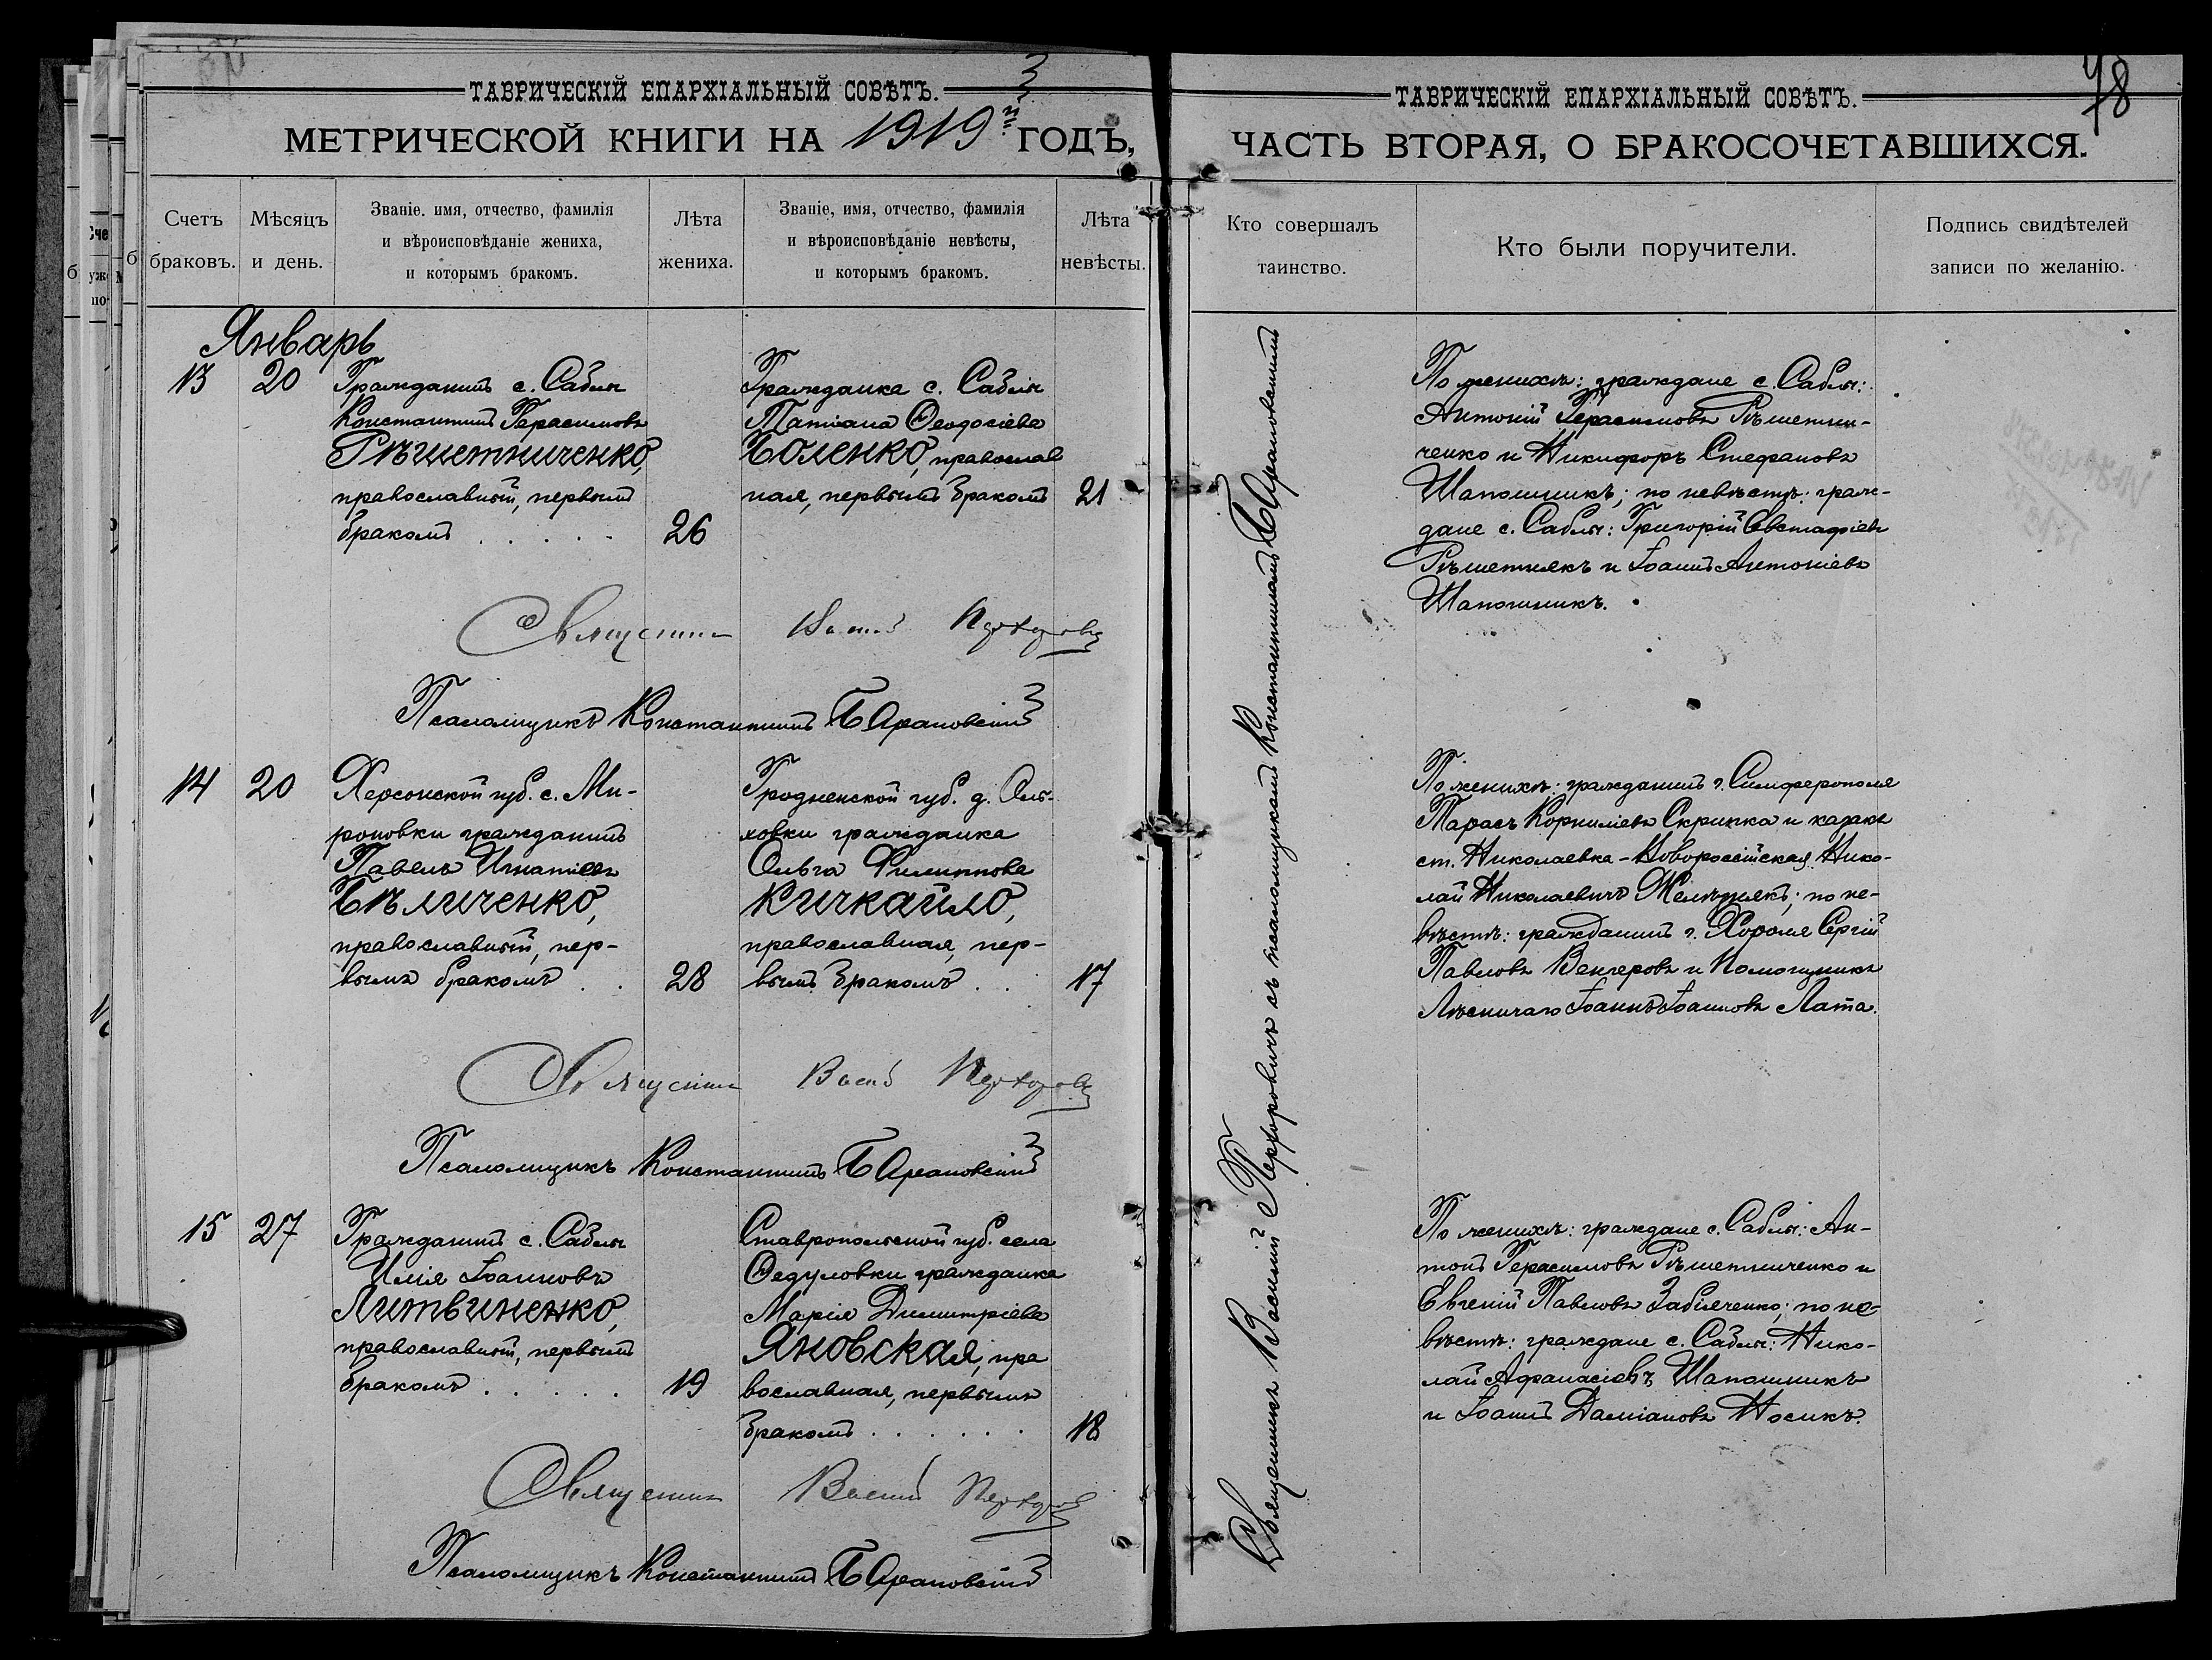 ТАВРИЧЕСКІЙ ЕПАРХІАЛЬНЫЙ СОВѢТЪ.
МЕТРИЧЕСКОЙ КНИГИ НА 1919й ГОДЪ,
Счетъ браковъ.
Мѣсяцъ и день.
Званіе. имя, отчество, фамилія
и вѣроисповѣданіе жениха,
и которымъ бракомъ.
Лѣта жениха.
Званіе, имя, отчество, фамилія
и вѣроисповѣданіе невѣсты,
и которымъ бракомъ.
Лѣта невѣсты.
Январь
13
20
Гражданинъ с. Саблы
Константинъ Герасимовъ
Рѣшетниченко,
православный, первымъ
бракомъ . . . . .
26
Гражданка с. Саблы
Татіана Ѳеодосіева
Боленко, православ
ная, первымъ бракомъ
21
Священникъ Василій
Псаломщикъ Константинъ Барановскій
14
20
Херсонской губ. с. Ми-
роновки гражданинъ
Павелъ Игнатіевъ
Бѣличенко,
православный, пер-
вымъ бракомъ . .
28
Гродненской губ. д. Оль-
ховки гражданка
Ольга Филиппова
Кичкайло,
православная, пер-
вымъ бракомъ . .
17
Священникъ Василій
Псаломщикъ Константинъ Барановскій
15
27
Гражданинъ с. Саблы
Илія Іоанновъ
Литвиненко,
православный, первымъ
бракомъ . . . . .
19
Ставропольской губ. села
Ѳедуловки гражданка
Марія Димитріева
Яновская, пра
вославная, первымъ
бракомъ . . . . . .
18
Священникъ Василій
Псаломщикъ Константинъ Барановскій
ТАВРИЧЕСКІЙ ЕПАРХІАЛЬНЫЙ СОВѢТЪ.
78
ЧАСТЬ ВТОРАЯ, О БРАКОСОЧЕТАВШИХСЯ.
Кто совершалъ таинство.
Кто были поручители.
Подпись свидѣтелей
записи по желанію.
Священникъ Василій Перхоровичъ съ псаломщикомъ Константиномъ Барановскимъ
По женихѣ: граждане с. Саблы:
Антоній Герасимовъ Рѣшетни-
ченко и Никифоръ Стефановъ
Шапошникъ; по невѣстѣ: граж-
дане с. Саблы: Григорій Евстафіевъ
Рѣшетнякъ и Іоаннъ Антоніевъ
Шапошникъ.
По женихѣ: гражданинъ г. Симферополя
Тарасъ Корниліевъ Скрипка и казакъ
ст. Николаевка-Новороссійская Нико-
лай Николаевичъ Желѣзнякъ; по не-
вѣстѣ: гражданинъ г. Хороля Сергій
Павловъ Венгеровъ и Помощникъ
Лѣсничаго Іоаннъ Іоанновъ Лата.
По женихѣ: граждане с. Саблы: Ан-
тонъ Герасимовъ Рѣшетниченко и
Евгеній Павловъ Забіяченко; по не-
вѣстѣ: граждане с. Саблы: Нико-
лай Афанасіевъ Шапошникъ
и Іоаннъ Даміановъ Носикъ.